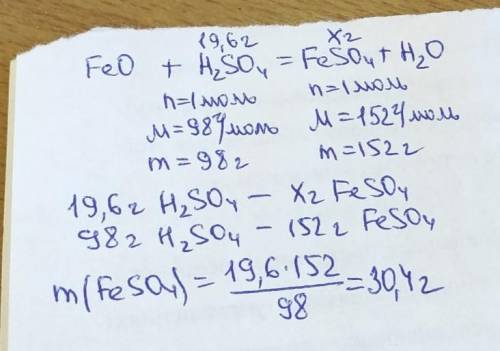 19,6г xг
FeO + H₂SO₄ = FeSO₄ + H₂O
n=1моль n=1моль
M=98г/моль M=152г/моль
m=98г m=152г
19,6г H₂SO₄ – xг FeSO₄
98г H₂SO₄ – 152г FeSO₄
m(FeSO₄) = 19,6·152/98 = 30,4г